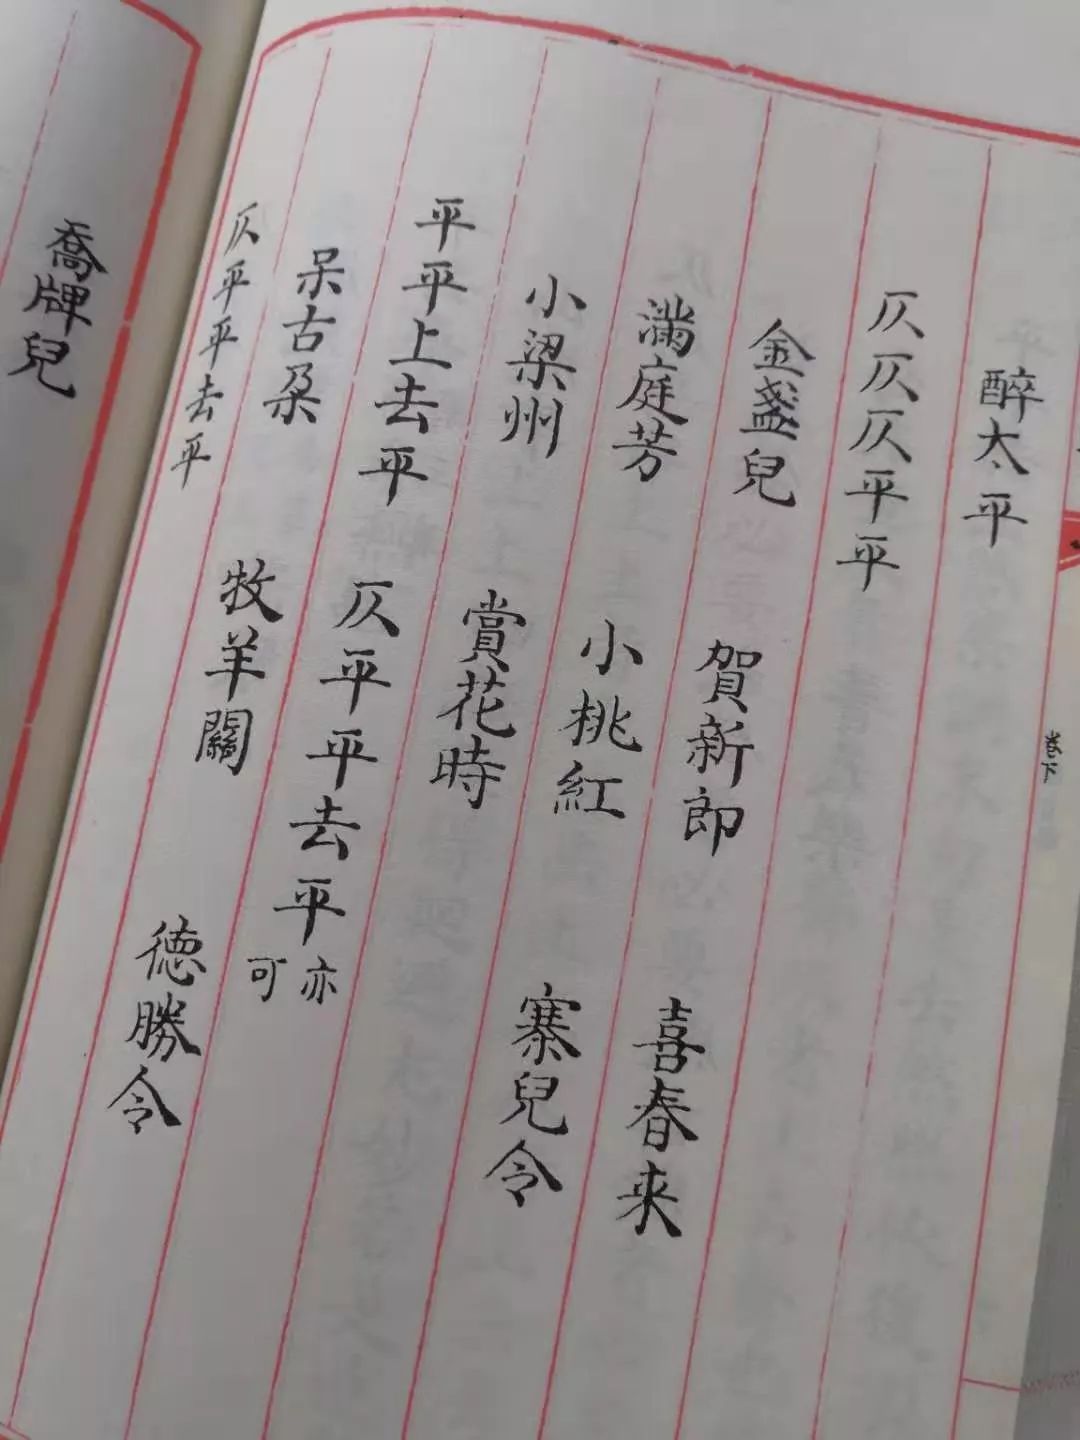 醉太平
仄仄仄平平
金盞兒 賀新郎 喜春来
滿庭芳 小桃紅 寨兒令
小梁州 賞花時
平平上去平 仄平平去平 亦可
呆古朶 牧羊關 德勝令
仄平平去平
喬牌兒
卷下